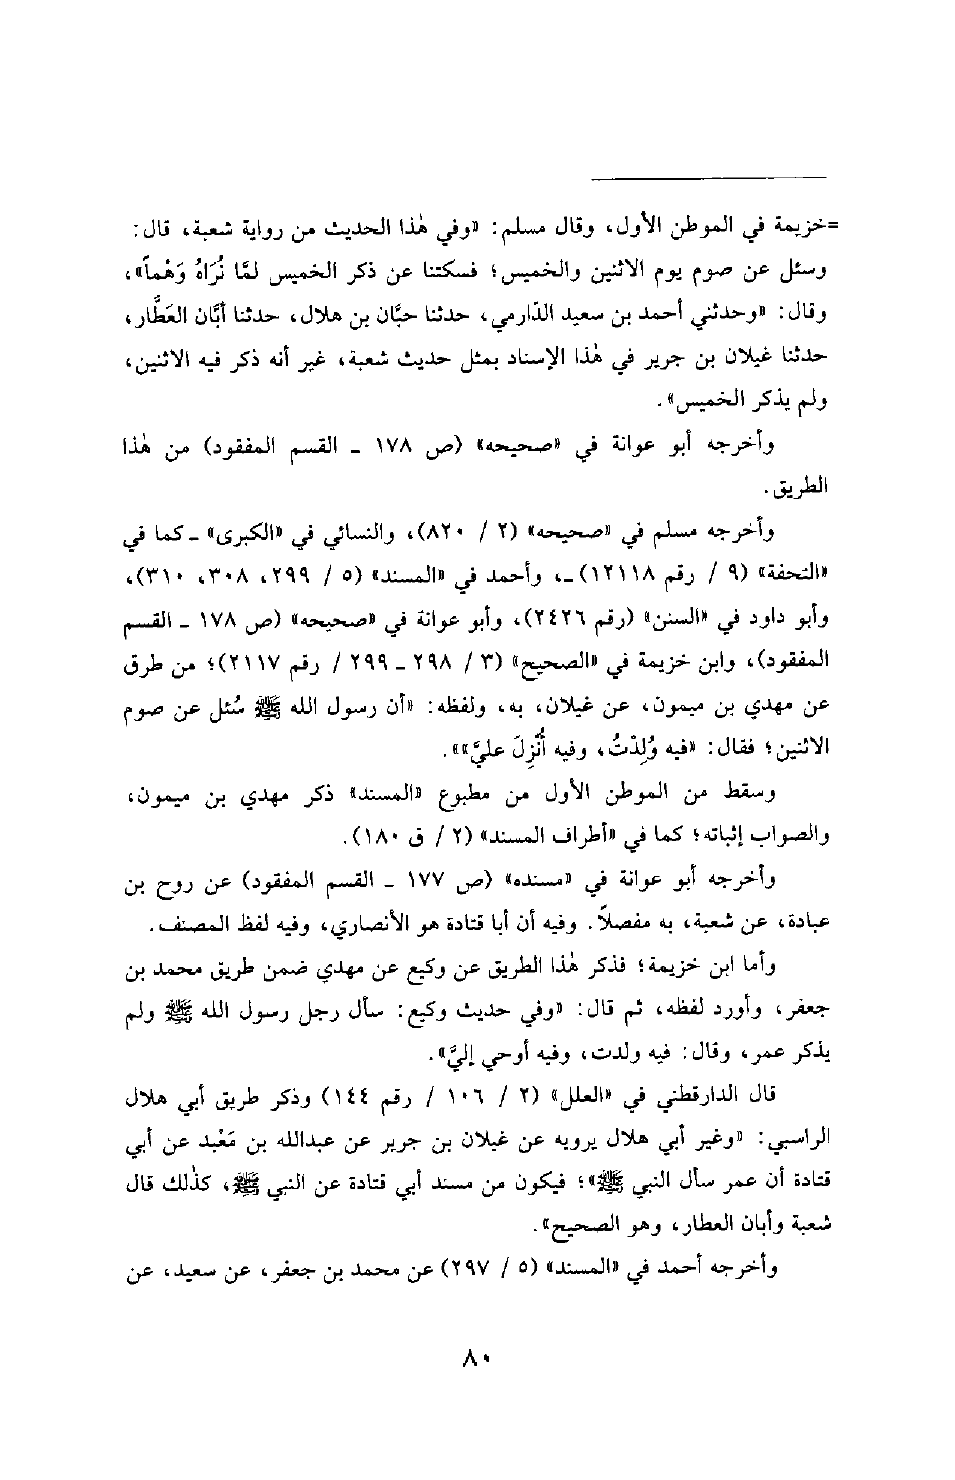 =خزيمة في الموطن الأول، وقال مسلم: «وفي هٰذا الحديث من رواية شعبة، قال:
وسئل عن صوم يوم الاثنين والخميس؛ فسكتنا عن ذكر الخميس لمَّا نُرَاهُ وَهْماً»،
وقال: «وحدثني أحمد بن سعيد الدَّارمي، حدثنا حبَّان بن هلال، حدثنا أبَّان العَطَّار،
حدثنا غيلان بن جرير في هٰذا الإسناد بمثل حديث شعبة، غير أنه ذكر فيه الاثنين،
ولم يذكر الخميس».
وأخرجه أبو عوانة في «صحيحه» (ص ١٧٨ ـ القسم المفقود) من هٰذا
الطريق.
وأخرجه مسلم في «صحيحه» (٢ / ٨٢٠)، والنسائي في «الكبرى» ـ كما في
«التحفة» (٩ / رقم ١٢١١٨) ـ، وأحمد في «المسند» (٥ / ٢٩٩، ٣٠٨، ٣١٠)،
وأبو داود في «السنن» (رقم ٢٤٢٦)، وأبو عوانة في «صحيحه» (ص ١٧٨ ـ القسم
المفقود)، وابن خزيمة في «الصحيح» (٣ / ٢٩٨ ـ ٢٩٩ / رقم ٢١١٧)؛ من طرق
عن مهدي بن ميمون، عن غيلان، به، ولفظه: «أن رسول الله ﷺ سُئل عن صوم
الاثنين؛ فقال: «فيه وُلِدْتُ، وفيه أُنْزِلَ عليَّ»».
وسقط من الموطن الأول من مطبوع «المسند» ذكر مهدي بن ميمون،
والصواب إثباته؛ كما في «أطراف المسند» (٢ / ق ١٨٠).
وأخرجه أبو عوانة في «مسنده» (ص ١٧٧ ـ القسم المفقود) عن روح بن
عبادة، عن شعبة، به مفصلاً. وفيه أن أبا قتادة هو الأنصاري، وفيه لفظ المصنف.
وأما ابن خزيمة؛ فذكر هٰذا الطريق عن وكيع عن مهدي ضمن طريق محمد بن
جعفر، وأورد لفظه، ثم قال: «وفي حديث وكيع: سأل رجل رسول الله ﷺ ولم
يذكر عمر، وقال: فيه ولدت، وفيه أوحي إليَّ».
قال الدارقطني في «العلل» (٢ / ١٠٦ / رقم ١٤٤) وذكر طريق أبي هلال
الراسبي: «وغير أبي هلال يرويه عن غيلان بن جرير عن عبدالله بن مَعْبد عن أبي
قتادة أن عمر سأل النبي ﷺ»؛ فيكون من مسند أبي قتادة عن النبي ﷺ، كذٰلك قال
شعبة وأبان العطار، وهو الصحيح».
وأخرجه أحمد في «المسند» (٥ / ٢٩٧) عن محمد بن جعفر، عن سعيد، عن
٨٠